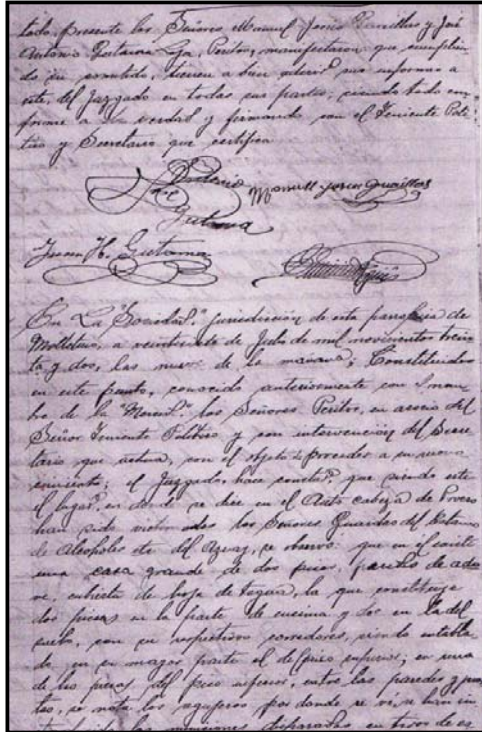 tado, presente los Señores Manuel Jesús y José
Antonio Gutama L. Peritos, manifestaron que cumplien-
do su cometido, tienen a bien sus informes a
este del Juzgado en todas sus partes; siendo todo con-
forme a la verdad y firmando con el Teniente Polí-
tico y Secretario que certifica
Antonio
José
Gutama
Manuel Jesús
Juan H. Gutama
En La "Sociedad" jurisdicción de esta parroquia de
Molleturo, a veintisiete de Julio de mil novecientos trein-
ta y dos, las nueve de la mañana; Constituidos
en este punto, conocido anteriormente con el nom-
bre de la los Señores Peritos, en asocio del
Señor Teniente Político y con intervención del Secre-
tario que actúa, con el objeto de proceder a su recono-
cimiento; el Juzgado, hace constar: que siendo este
el lugar, en donde se dice en el Auto cabeza de Proceso
han sido victimados los Señores Guardas del Estanco
de Alcoholes del Azuay, se observó: que en él existe
una casa grande de dos pisos, paredes de ado-
ve, cubierta de hoja de tagua, la que constituye
dos piezas en la parte de encima y dos en la del
suelo, con sus respectivos corredores, siendo entabla-
do en su mayor parte el de piso superior; en una
de las piezas del piso inferior, entre las paredes y puer-
tas, se nota los agujeros por donde se ve, se han in-
las municiones disparadas en tiros de es-